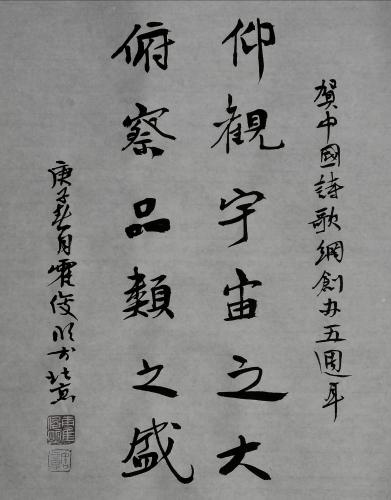 賀中國詩歌網創办五週年
仰觀宇宙之大
俯察品類之盛
庚子春月霍俊明於北京